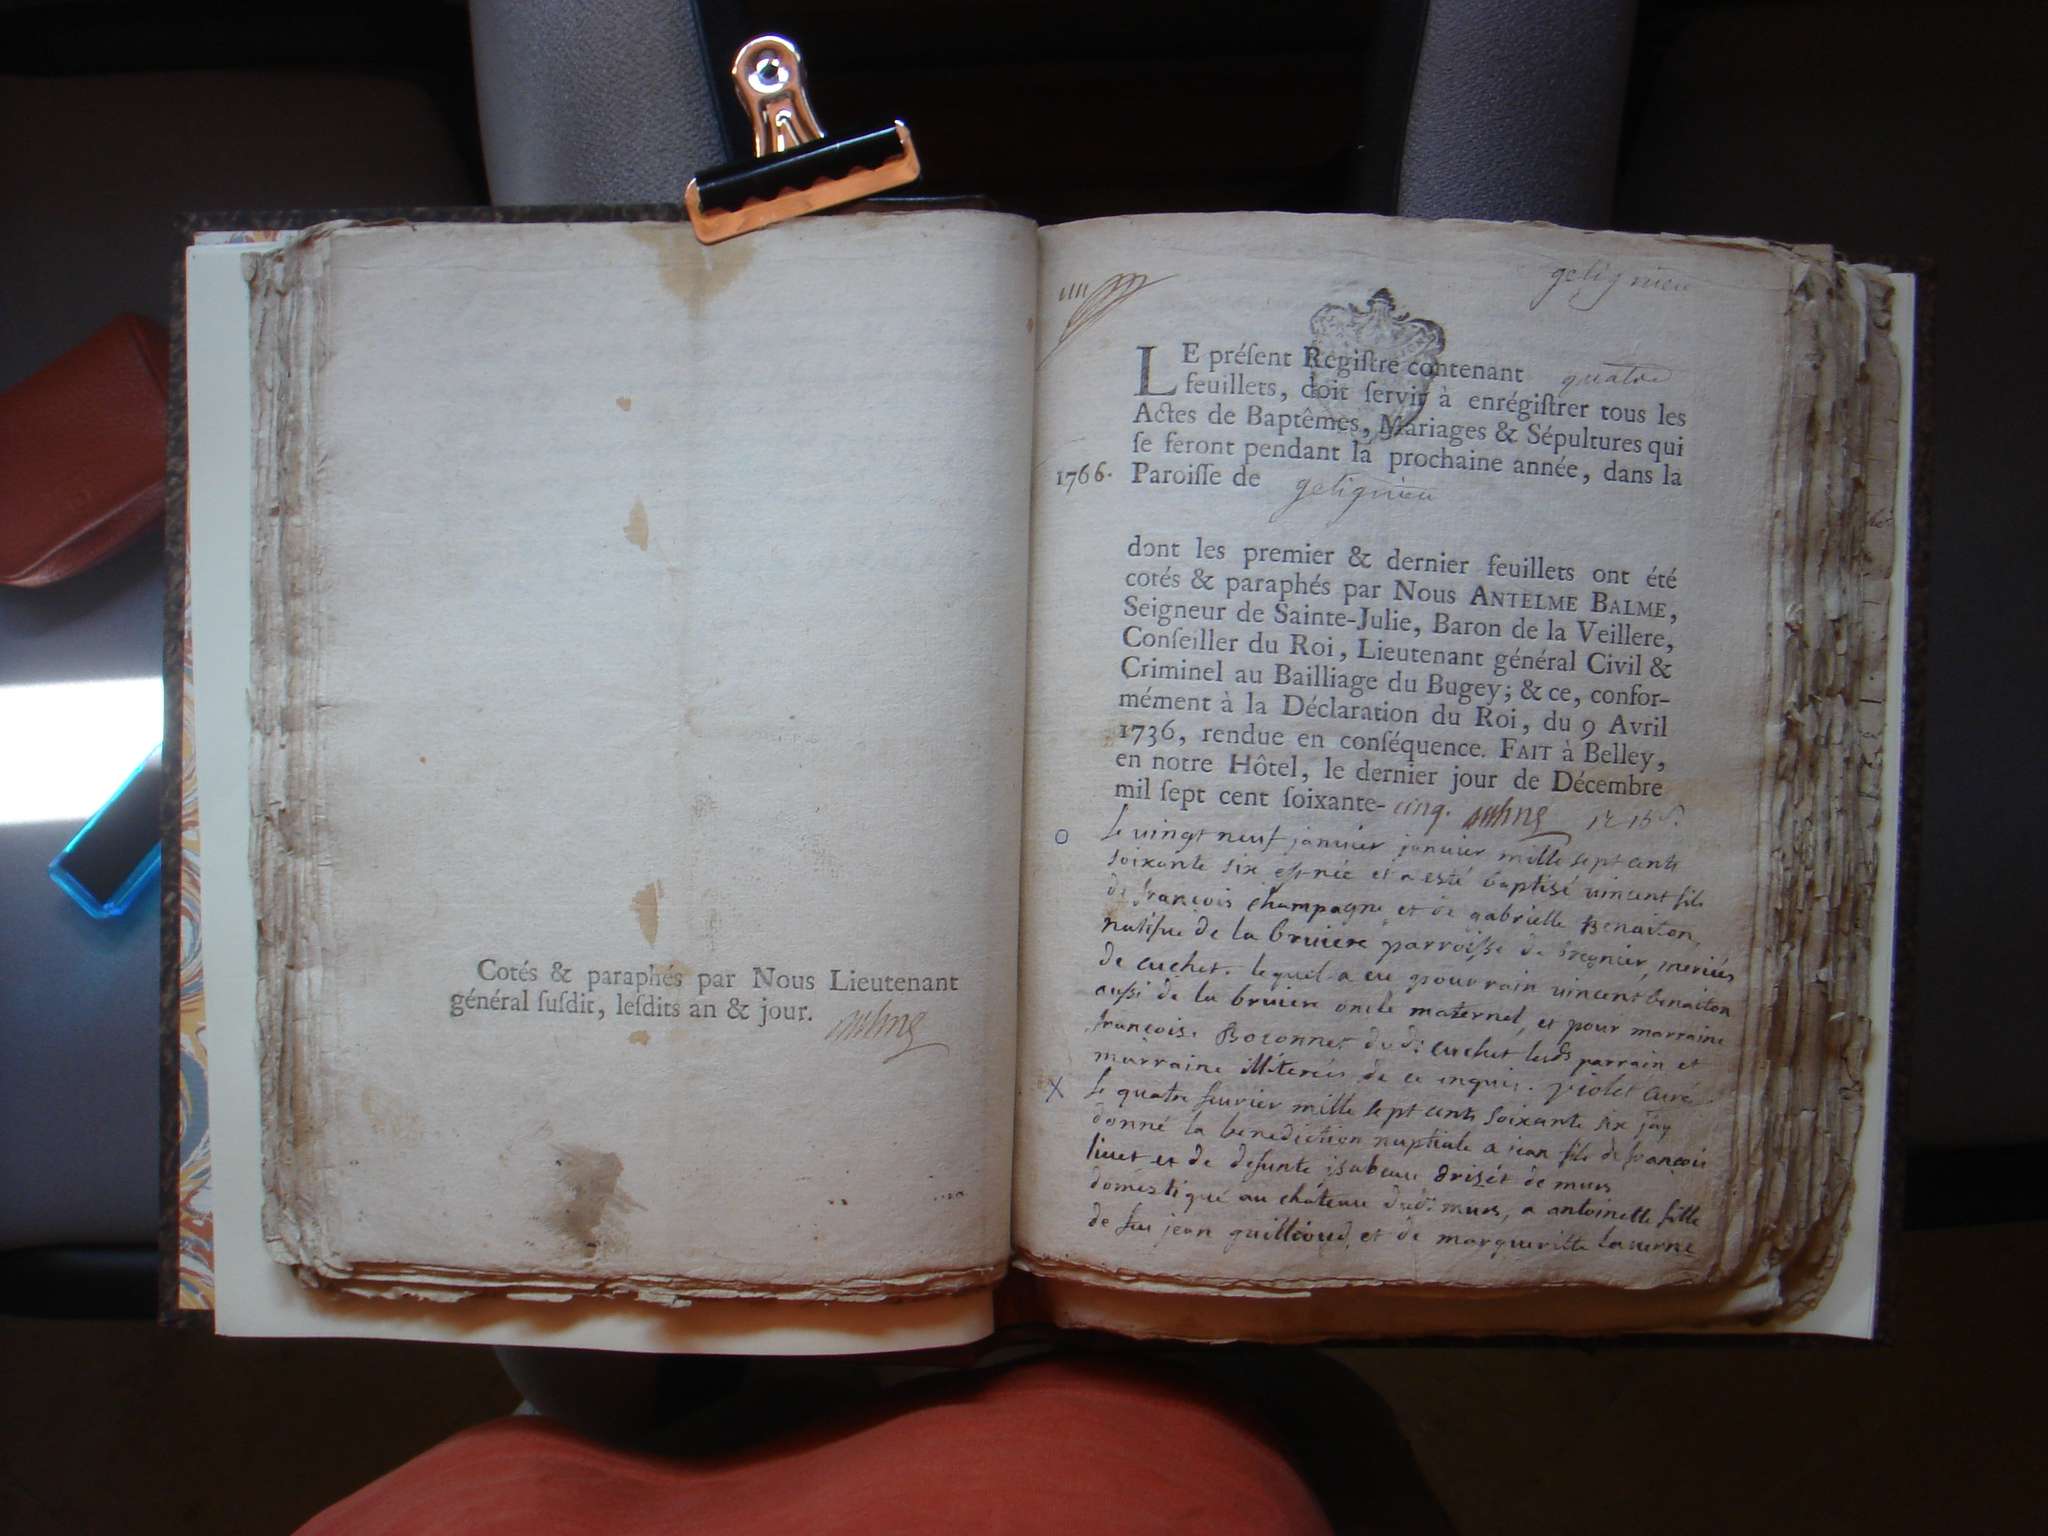 Cotés & paraphés par Nous Lieutenant
général ſuſdit, leſdits an & jour.
gelignieu
LE préſent Regiſtre contenant quatre
feuillets, doit ſervir à enrégiſtrer tous les
Actes de Baptêmes, Mariages & Sépultures qui
ſe feront pendant la prochaine année, dans la
1766. Paroiſſe de gelignieu
dont les premier & dernier feuillets ont été
cotés & paraphés par Nous ANTELME BALME,
Seigneur de Sainte-Julie, Baron de la Veillere,
Conſeiller du Roi, Lieutenant général Civil &
Criminel au Bailliage du Bugey; & ce, confor-
mément à la Déclaration du Roi, du 9 Avril
1736, rendue en conſéquence. FAIT à Belley,
en notre Hôtel, le dernier jour de Décembre
mil ſept cent ſoixante-cinq.
le vingt neuf janvier janvier mille sept cents
soixante six est née et a esté baptisé vincent fils
de françois champagne et de gabrielle Benaiton
natifue de la bruiere parroisse de bregnier, meriés
de cuchet. lequel a eu pour rain vincent benaiton
aussi de la bruiere oncle maternel, et pour marraine
françoise dud: cuchet lesds parrain et
marraine illiterés de ce enquis. violet curé
X le quatre feurier mille sept cents soixante six jay
donné la benediction nuptiale a jean fils de françois
liuet et de defunte isabeau drisét de murs
doméstique au château dud: murs, a antoinette fille
de feu jean guillioud, et de margueritte lauerne